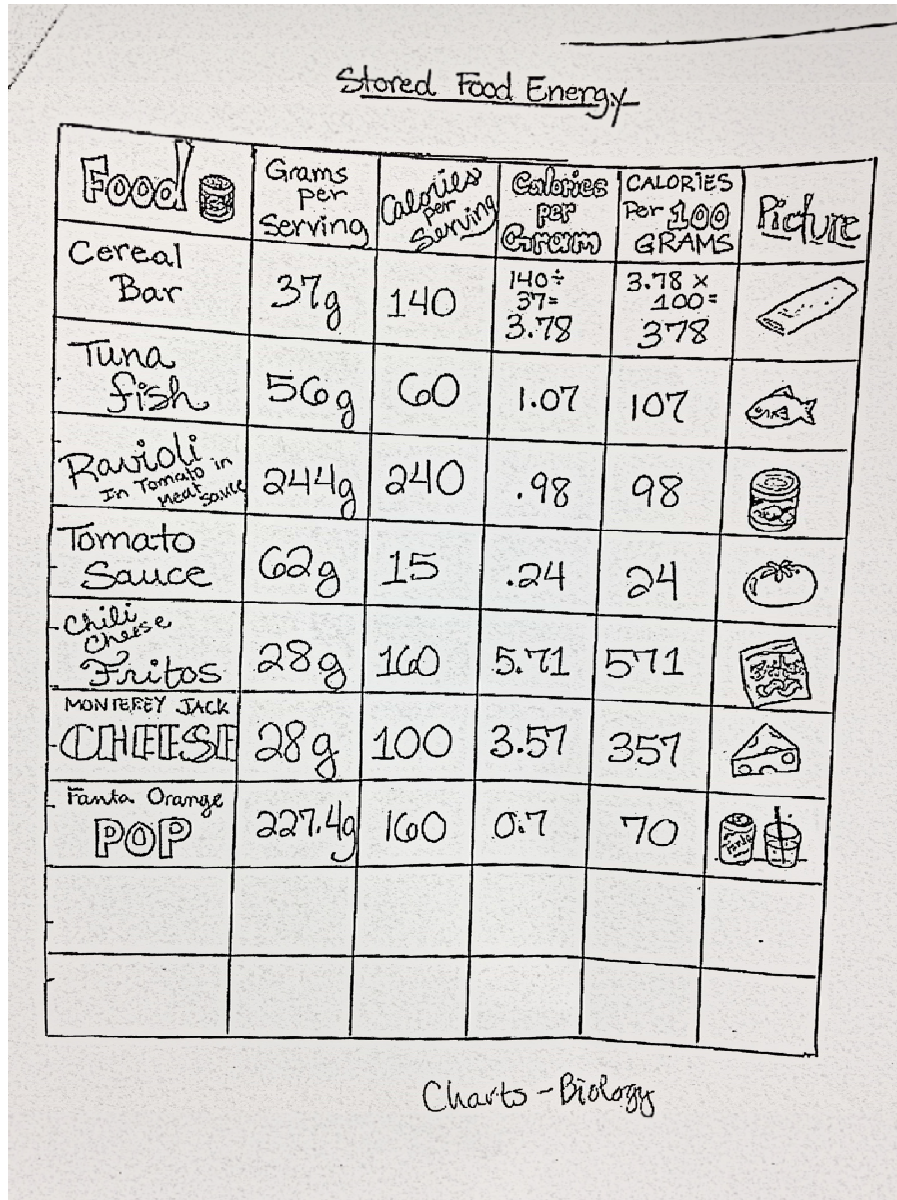 Stored Food Energy
Food
Grams
per
Serving
Calories
per
Serving
Calories
per
Gram
CALORIES
Per 100
GRAMS
Picture
Cereal
Bar
37g
140
140÷
37=
3.78
3.78 ×
100=
378
Tuna
fish
56g
60
1.07
107
Ravioli
In Tomato in
Meat sauce
244g
240
.98
98
Tomato
Sauce
62g
15
.24
24
Chili
Cheese
Fritos
28g
160
5.71
571
MONTEREY JACK
CHEESE
28g
100
3.57
357
Fanta Orange
POP
227.4g
160
0.7
70
Charts - Biology